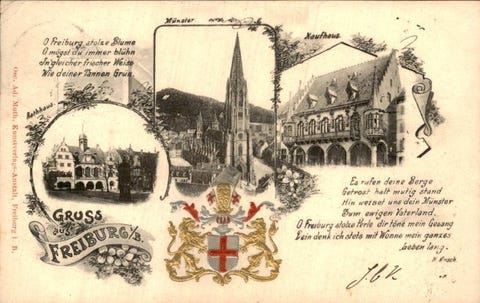 Münster
Kaufhaus
O Freiburg stolze Blume
O mögst du immer blühn
In gleicher frischer Weise
Wie deiner Tannen Grün.
Rathhaus
Gec. Ad. Muth, Kunstverlags-Anstalt, Freiburg i. B.
GRUSS
aus
FREIBURG i/B.
Es rufen deine Berge
Getrost halt mutig stand
Hin weiset uns dein Münster
Zum ewigen Vaterland.
O Freiburg stolze Perle dir töne mein Gesang
Dein denk ich stets mit Wonne mein ganzes
Leben lang.